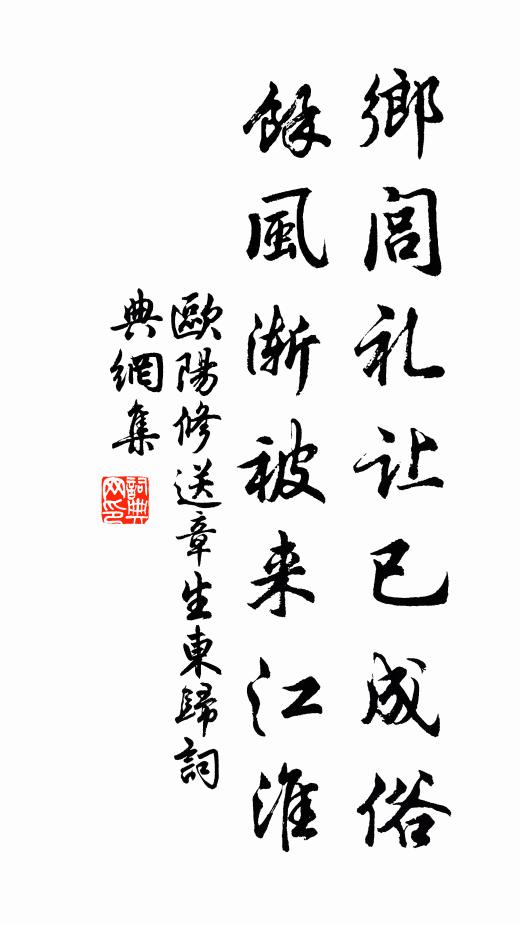 鄉閭礼让已成俗
餘風渐被来江淮
歐陽修送章生東歸詞
典網集
詞典网印